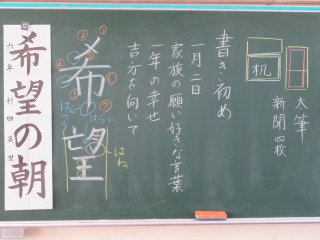 机
太筆
新聞四枚
書き初め
一月二日
家族の願い好きな言葉
一年の幸せ
吉方を向いて
希望
はらい
はね
希望の朝
六年 村四英里